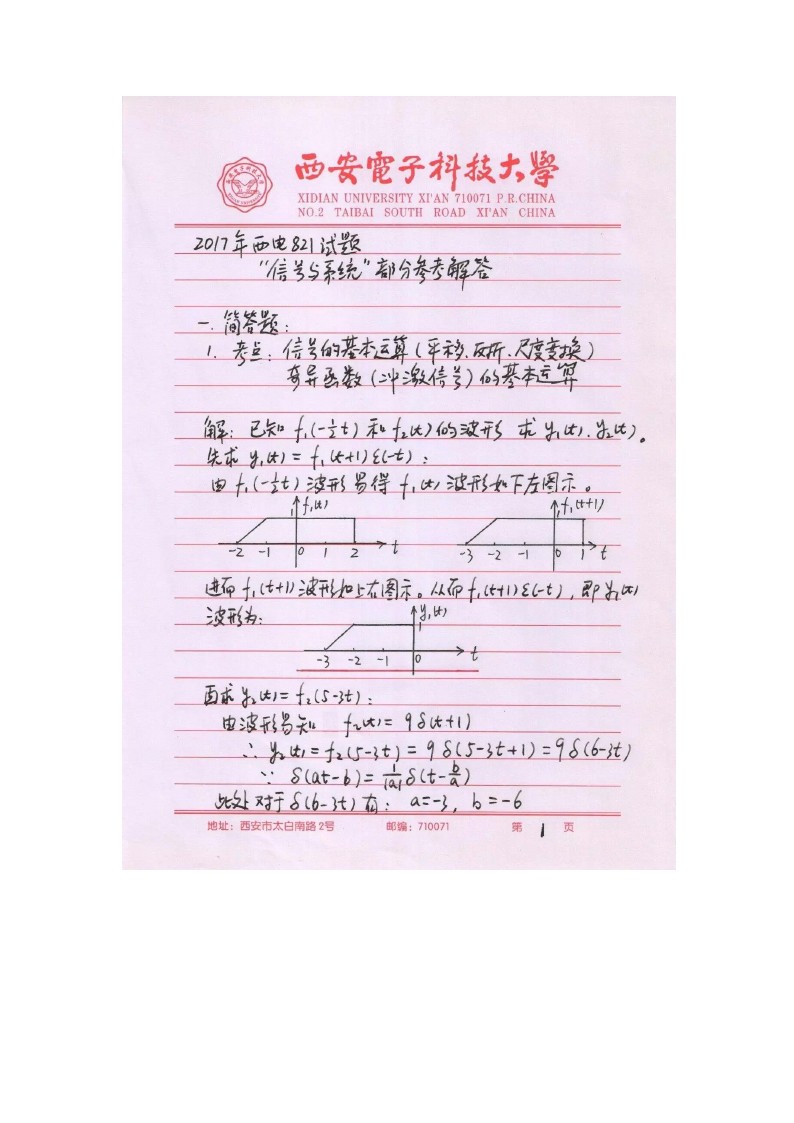 西安電子科技大學
XIDIAN UNIVERSITY XI'AN 710071 P.R.CHINA
NO.2 TAIBAI SOUTH ROAD XI'AN CHINA
2017年西电821试题
“信号与系统”部分参考解答
一. 简答题：
1. 考点：信号的基本运算(平移、反折、尺度变换)
奇异函数(冲激信号)的基本运算
解：已知 f₁(-½t) 和 f₂(t) 的波形 求 y₁(t)、y₂(t)。
先求 y₁(t) = f₁(t+1)ε(-t)：
由 f₁(-½t) 波形易得 f₁(t) 波形如下左图示。
1 f₁(t)
-2 -1 0 1 2 t
1 f₁(t+1)
-3 -2 -1 0 1 t
进而 f₁(t+1) 波形如上右图示。从而 f₁(t+1)ε(-t)，即 y₁(t)
波形为：
y₁(t)
1
-3 -2 -1 0 t
再求 y₂(t) = f₂(5-3t)：
由波形易知 f₂(t) = 9δ(t+1)
∴ y₂(t) = f₂(5-3t) = 9δ(5-3t+1) = 9δ(6-3t)
∵ δ(at-b) = 1/|a| δ(t-b/a)
此处对于 δ(6-3t) 有： a=-3, b=-6
地址：西安市太白南路2号 邮编：710071 第 1 页